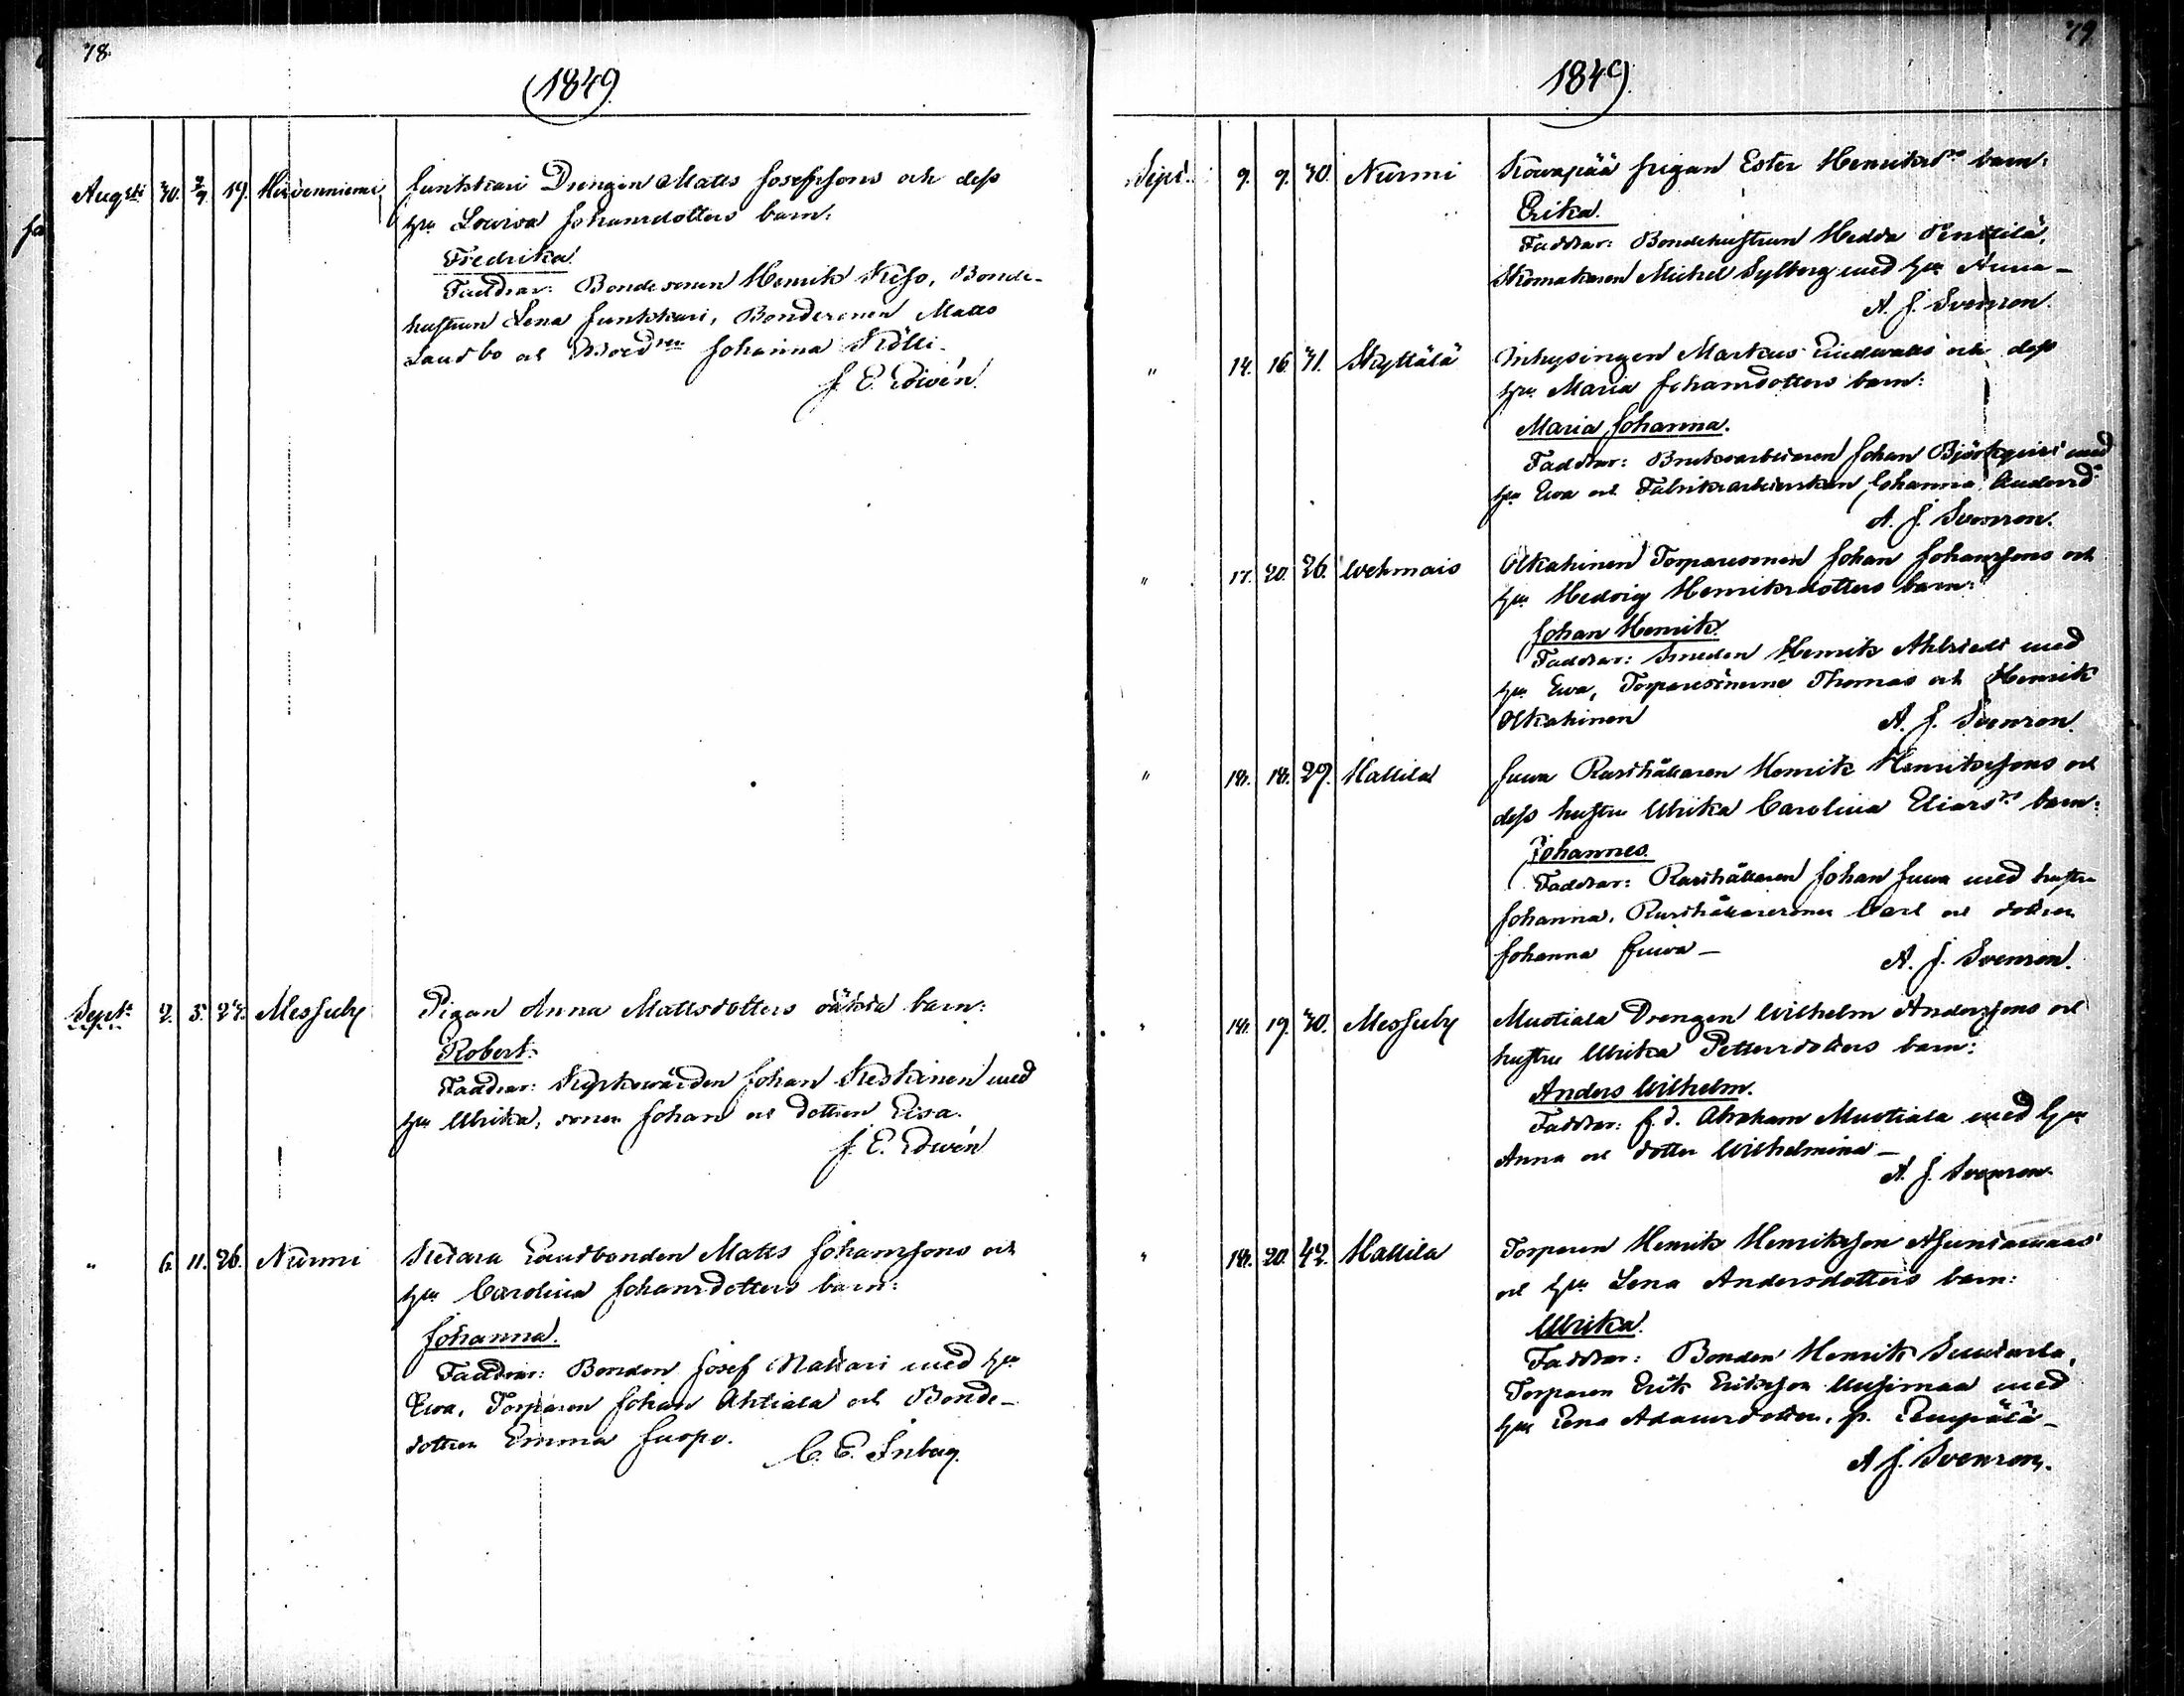 78.
1849
Augsti 30. 2/9 19. Hirvenniemi, Junkkari Drengen Matts Josefssons och dess
hu Lovisa Johansdotters barn:
Fredrika.
Faddrar: Bondesonen Henrik Keso, Bonde-
hustrun Lena Junkkari, Bondesonen Matts
Landbo och Johanna Kölli.
J. E. Edwén.
Sept. 2. 5. 27. Messuby Pigan Anna Mattsdotters oäkta barn:
Robert.
Faddrar: Kyrkowärden Johan Keskinen med
hu Ulrika, sonen Johan och dottren Lisa.
J. E. Edwén
" 6. 11. 26. Nurmi Ketara Landbonden Matts Johanssons och
hu Carolina Johansdotters barn:
Johanna.
Faddrar: Bonden Josef Mattari med hu
Ewa, Torparen Johan Ahtiala och Bonde-
dottren Emma Juopo.
C. E.
79
1849.
Sept. 9. 9. 30. Nurmi Kowapää pigan Ester Henriksdrs barn:
Erika.
Faddrar: Bondehustrun Hedda Penttilä,
Skomakaren Michel Sylberg med hu Anna –
A. J. Svenson.
" 14. 16. 31. Skyttälä Inhysingen Markus och dess
hu Maria Johansdotters barn:
Maria Johanna.
Faddrar: Bruksarbetaren Johan Björkqvist med
hu Ewa och Fabriksarbeterskan Johanna Andersd.
A. J. Svenson.
" 17. 20. 26. Wehmais Olkahinen Torparesonen Johan Johanssons och
hu Hedvig Henriksdotters barn:
Johan Henrik.
Faddrar: Smeden Henrik Ahlstedt med
hu Ewa, Torparesönerne Thomas och Henrik
Olkahinen A. J. Svenson.
" 18. 18. 29. Hallila Juwa Rusthållaren Henrik Henrikssons och
dess hustru Ulrika Carolina Eliasdrs barn:
Johannes.
Faddrar: Rusthållaren Johan Juwa med hustru
Johanna, Rusthållaresonen Carl och dottren
Johanna Juwa – A. J. Svenson.
" 18. 19. 30. Messuby Muotiala Drengen Wilhelm Anderssons och
hustru Ulrika Pettersdotters barn:
Anders Wilhelm.
Faddrar: f. d. Abraham Muotiala med hu
Anna och dotter Wilhelmina –
A. J. Svenson.
" 18. 20. 42. Hallila Torparen Henrik Henriksson
och hu Lena Andersdotters barn:
Ulrika.
Faddrar: Bonden Henrik
Torparen Erik Eriksson Uusimaa med
hu Lena Adamsdotter, fr. Lempälä –
A J. Svenson.